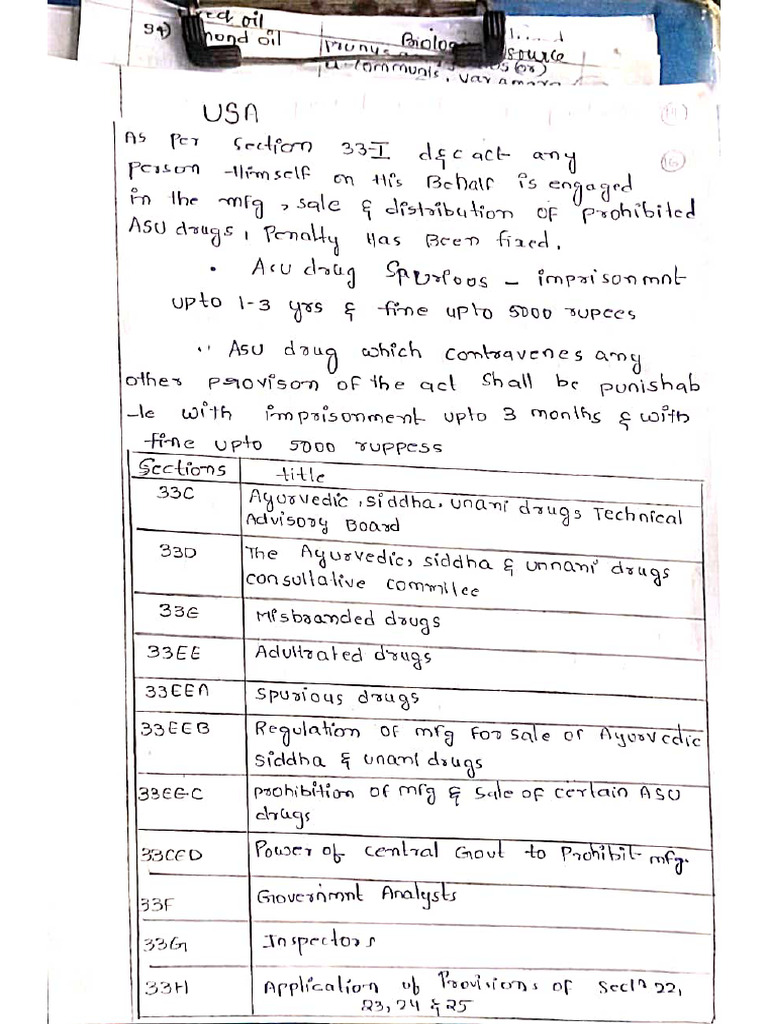 34) mond oil
Biolog source
USA
As Per Section 33-I d&c act any
person Himself on His Behalf is engaged
in the mfg, sale & distribution of prohibited
ASU drugs, Penalty Has Been fixed.
• Acu drug Spurioos - imprisonmnt
upto 1-3 yrs & fine upto 5000 rupees
•• ASU drug which contravenes any
other provison of the act shall be punishab
-le with imprisonment upto 3 months & with
fine upto 5000 ruppess
Sections title
33C Ayurvedic, siddha, unani drugs Technical
Advisory Board
33D The Ayurvedic, siddha & unnani drugs
consultative commilee
33E Misbranded drugs
33EE Adultrated drugs
33EEA Spurious drugs
33EEB Regulation of mfg for sale of Ayurvedic
siddha & unani drugs
33EEC prohibition of mfg & sale of certain ASU
drugs
33CED Power of central Govt to Prohibit mfg.
33F Governmnt Analysts
33G Inspectors
33H Application of Provisions of Secln 22,
23, 24 & 25